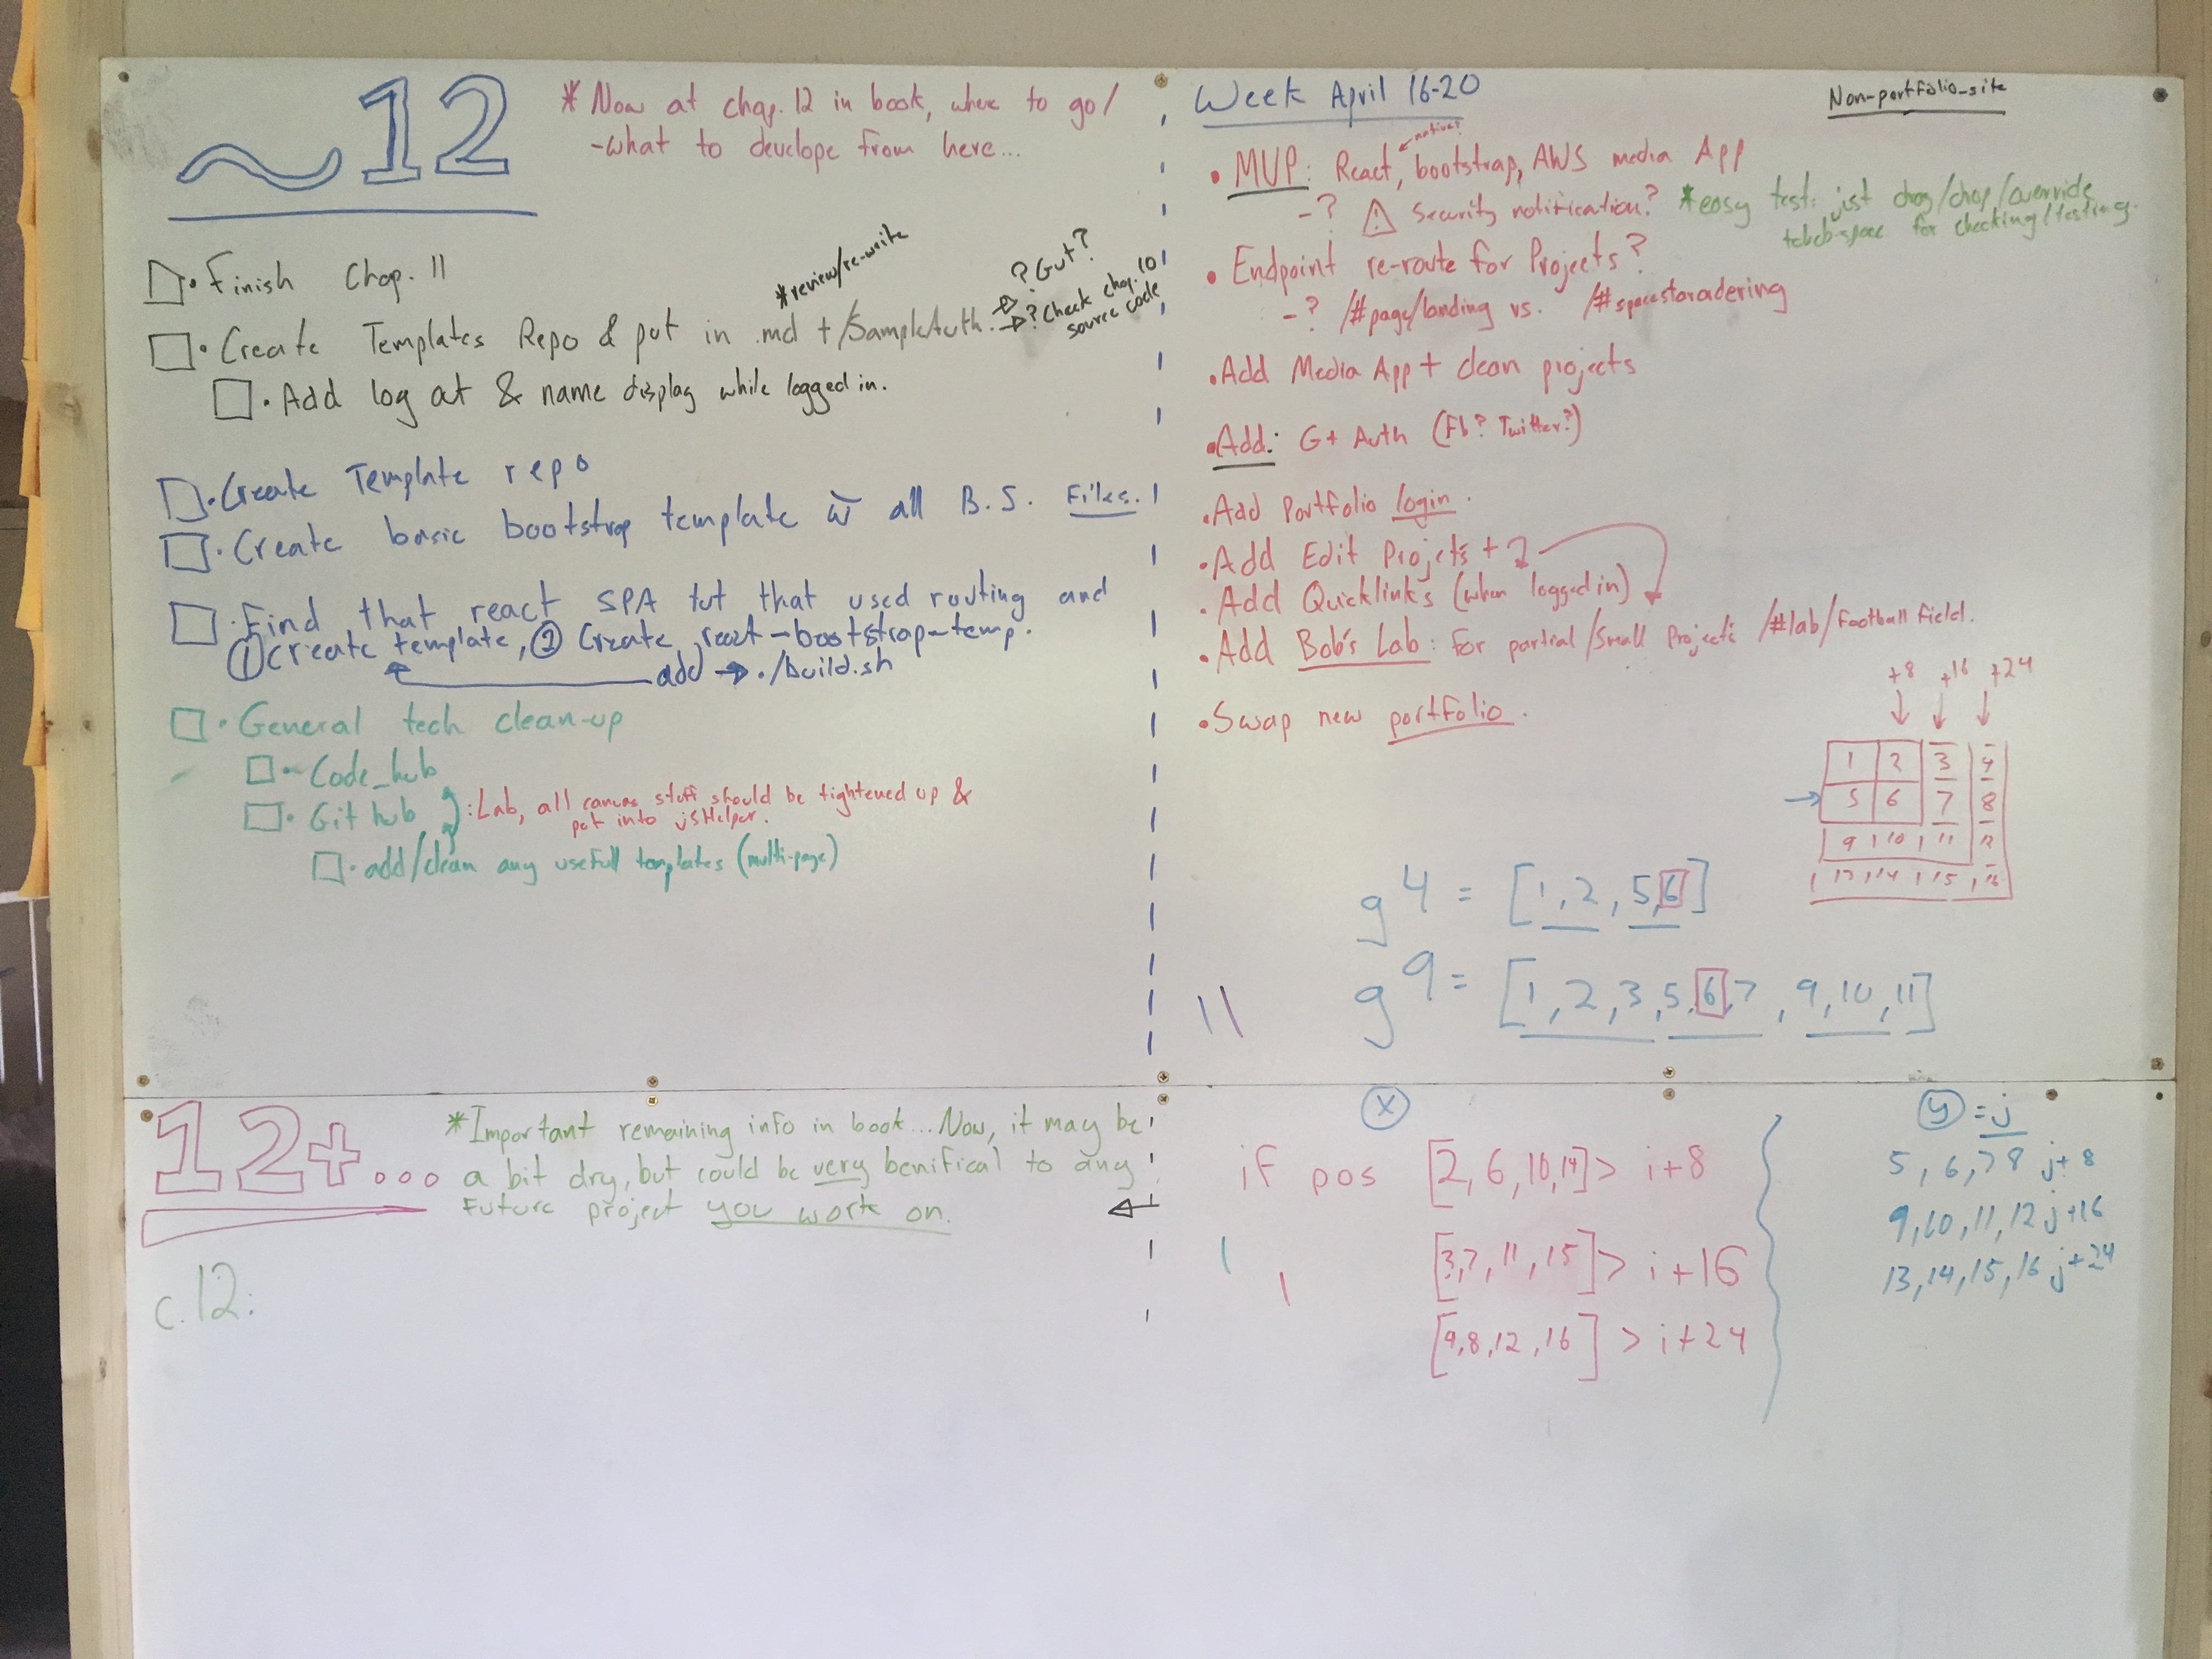 ~12
* Now at chap. 12 in book, where to go/
-what to develope from here...
• Finish Chap. 11
*review/re-write
• Create Templates Repo & put in .md + /SampleAuth.
? Gut?
? Check chap. 10
source code
• Add log at & name display while logged in.
• Create Template repo
• Create basic bootstrap template w all B.S. Files.
• Find that react SPA tut that used routing and
① Create template, ② Create react-bootstrap-temp.
add → ./build.sh
• General tech clean-up
• Code_hub
• Git hub
: Lab, all canvas stuff should be tightened up &
put into jSHelper.
• add/clean any usefull templates (multi-page)
Week April 16-20
Non-portfolio-site
native?
• MVP: React, bootstrap, AWS media App
-? ⚠ Security notification?
*easy test: just drag/chop/override
space for checking/testing.
• Endpoint re-route for Projects?
-? /#page/landing vs. /#spacestaradering
• Add Media App + clean projects
• Add: G+ Auth (Fb? Twitter?)
• Add Portfolio login.
• Add Edit Projects +
• Add Quicklinks (when logged in)
• Add Bob's Lab: for partial/small Projects /#lab/Football Field.
• Swap new portfolio.
+8 +16 +24
1 2 3 4
5 6 7 8
9 10 11 12
13 14 15 16
g4 = [1,2,5,6]
g9 = [1,2,3,5,6,7,9,10,11]
12+...
*Important remaining info in book... Now, it may be
a bit dry, but could be very benifical to any
Future project you work on.
c.12:
x
if pos [2,6,10,14] > i+8
[3,7,11,15] > i+16
[4,8,12,16] > i+24
y = j
5,6,7 8 j+8
9,10,11,12 j+16
13,14,15,16 j+24